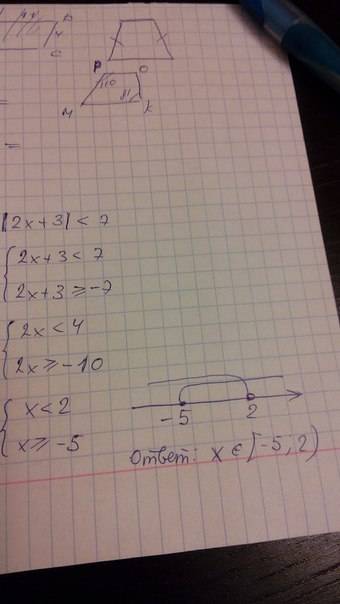 D
C
P O
110 81
M K
=
=
|2x+3| < 7
2x+3 < 7
2x+3 ≥ -7
2x < 4
2x ≥ -10
x < 2
x ≥ -5
-5 2
Ответ: x ∈ [-5; 2)